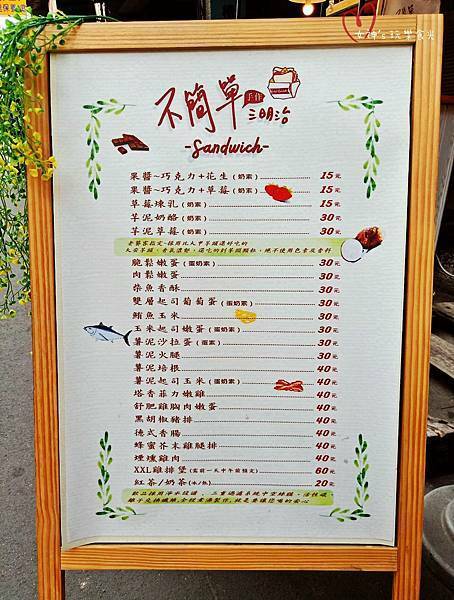 女神's 玩樂食光
不簡單
手作
三明治
-Sandwich-
果醬~巧克力+花生(奶素) 15元
果醬~巧克力+草莓(奶素) 15元
草莓煉乳(奶素) 15元
芋泥奶酪(奶素) 30元
芋泥草莓(奶素) 30元
脆鬆嫩蛋(蛋奶素) 30元
肉鬆嫩蛋 30元
柴魚香酥 30元
雙層起司葡萄蛋(蛋奶素) 30元
鮪魚玉米 30元
玉米起司嫩蛋(蛋奶素) 30元
薯泥沙拉蛋(蛋素) 30元
薯泥火腿 30元
薯泥培根 40元
薯泥起司玉米(蛋奶素) 40元
塔香菲力嫩雞 40元
舒肥雞胸肉嫩蛋 40元
黑胡椒豬排 40元
德式香腸 40元
蜂蜜芥末雞腿排 40元
煙燻雞肉 40元
XXL雞排堡(需前一天中午前預定) 60元
紅茶/奶茶(冰/熱) 20元